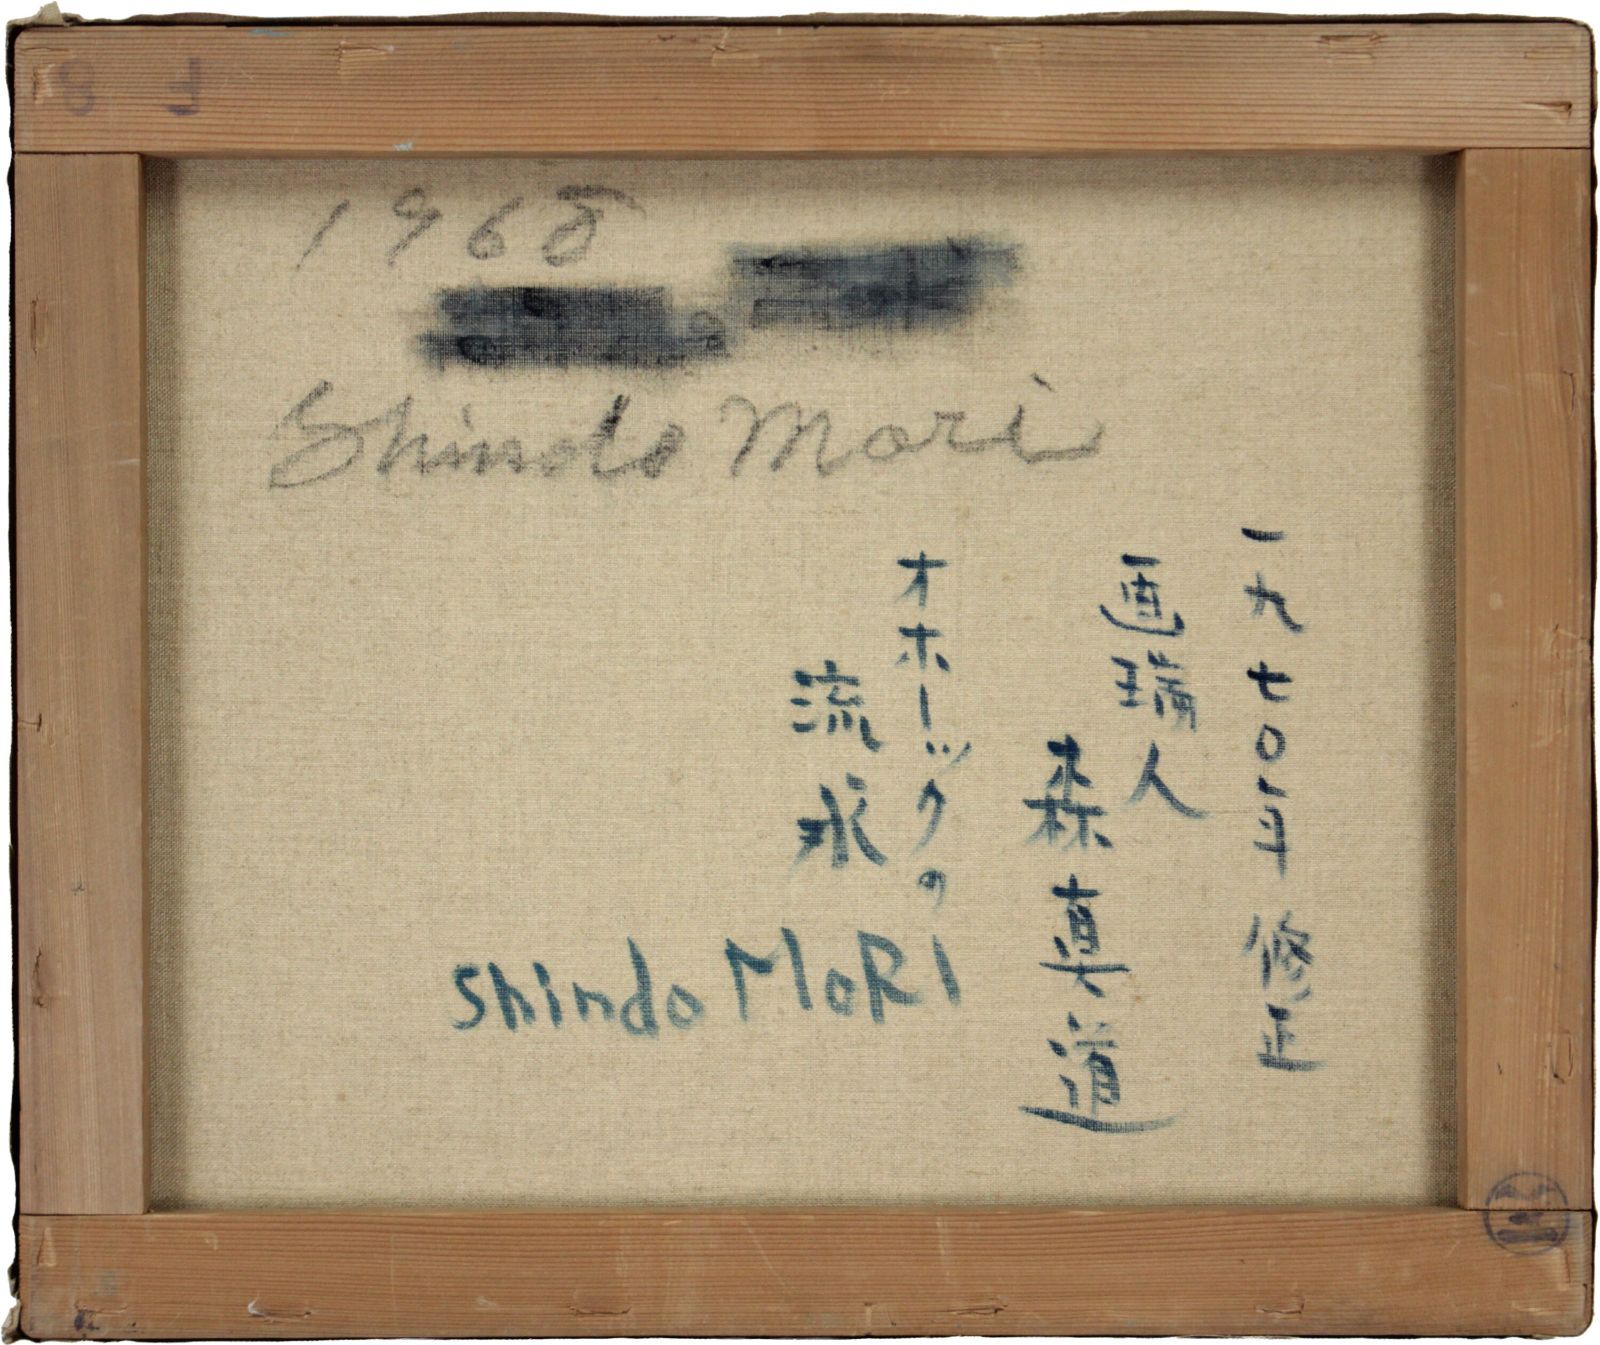 8 F
1968
Shindo Mori
一九七〇年 修正
画璃人
森真道
オホーツクの
流氷
shindo MORI